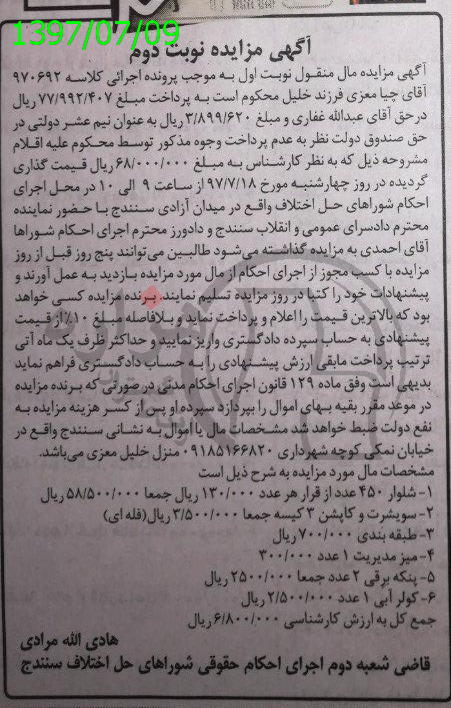 1397/07/09
آگهی مزایده نوبت دوم
آگهی مزایده مال منقول نوبت اول به موجب پرونده اجرائی کلاسه ۹۷۰۶۹۲
آقای چیا معزی فرزند خلیل محکوم است به پرداخت مبلغ ۷۷/۹۹۲/۴۰۷ ریال
در حق آقای عبدالله غفاری و مبلغ ۳/۸۹۹/۶۲۰ ریال به عنوان نیم عشر دولتی در
حق صندوق دولت نظر به عدم پرداخت وجوه مذکور توسط محکوم علیه اقلام
مشروحه ذیل که به نظر کارشناس به مبلغ ۶۸/۰۰۰/۰۰۰ ریال قیمت گذاری
گردیده در روز چهارشنبه مورخ ۹۷/۷/۱۸ از ساعت ۹ الی ۱۰ در محل اجرای
احکام شوراهای حل اختلاف واقع در میدان آزادی سنندج با حضور نماینده
محترم دادسرای عمومی و انقلاب سنندج و دادورز محترم اجرای احکام شوراها
آقای احمدی به مزایده گذاشته می‌شود طالبین می‌توانند پنج روز قبل از روز
مزایده با کسب مجوز از اجرای احکام از مال مورد مزایده بازدید به عمل آورند و
پیشنهادات خود را کتبا در روز مزایده تسلیم نمایند. برنده مزایده کسی خواهد
بود که بالاترین قیمت را اعلام و پرداخت نماید و بلافاصله مبلغ ۱۰٪ از قیمت
پیشنهادی به حساب سپرده دادگستری واریز نمایید و حداکثر ظرف یک ماه آتی
ترتیب پرداخت مابقی ارزش پیشنهادی را به حساب دادگستری فراهم نماید
بدیهی است وفق ماده ۱۲۹ قانون اجرای احکام مدنی در صورتی که برنده مزایده
در موعد مقرر بقیه بهای اموال را بپردازد سپرده او پس از کسر هزینه مزایده به
نفع دولت ضبط خواهد شد مشخصات مال یا اموال به نشانی سنندج واقع در
خیابان نمکی کوچه شهرداری ۰۹۱۸۵۱۶۶۸۲۰ منزل خلیل معزی می‌باشد.
مشخصات مال مورد مزایده به شرح ذیل است
۱- شلوار ۴۵۰ عدد از قرار هر عدد ۱۳۰/۰۰۰ ریال جمعا ۵۸/۵۰۰/۰۰۰ ریال
۲- سویشرت و کاپشن ۳ کیسه جمعا ۳/۵۰۰/۰۰۰ ریال (فله ای)
۳- طبقه بندی ۷۰۰/۰۰۰ ریال
۴- میز مدیریت ۱ عدد ۳۰۰/۰۰۰
۵- پنکه برقی ۲ عدد جمعا ۲۵۰۰/۰۰۰ ریال
۶- کولر آبی ۱ عدد ۲/۵۰۰/۰۰۰ ریال
جمع کل به ارزش کارشناسی ۶/۸۰۰/۰۰۰ ریال
هادی الله مرادی
قاضی شعبه دوم اجرای احکام حقوقی شوراهای حل اختلاف سنندج